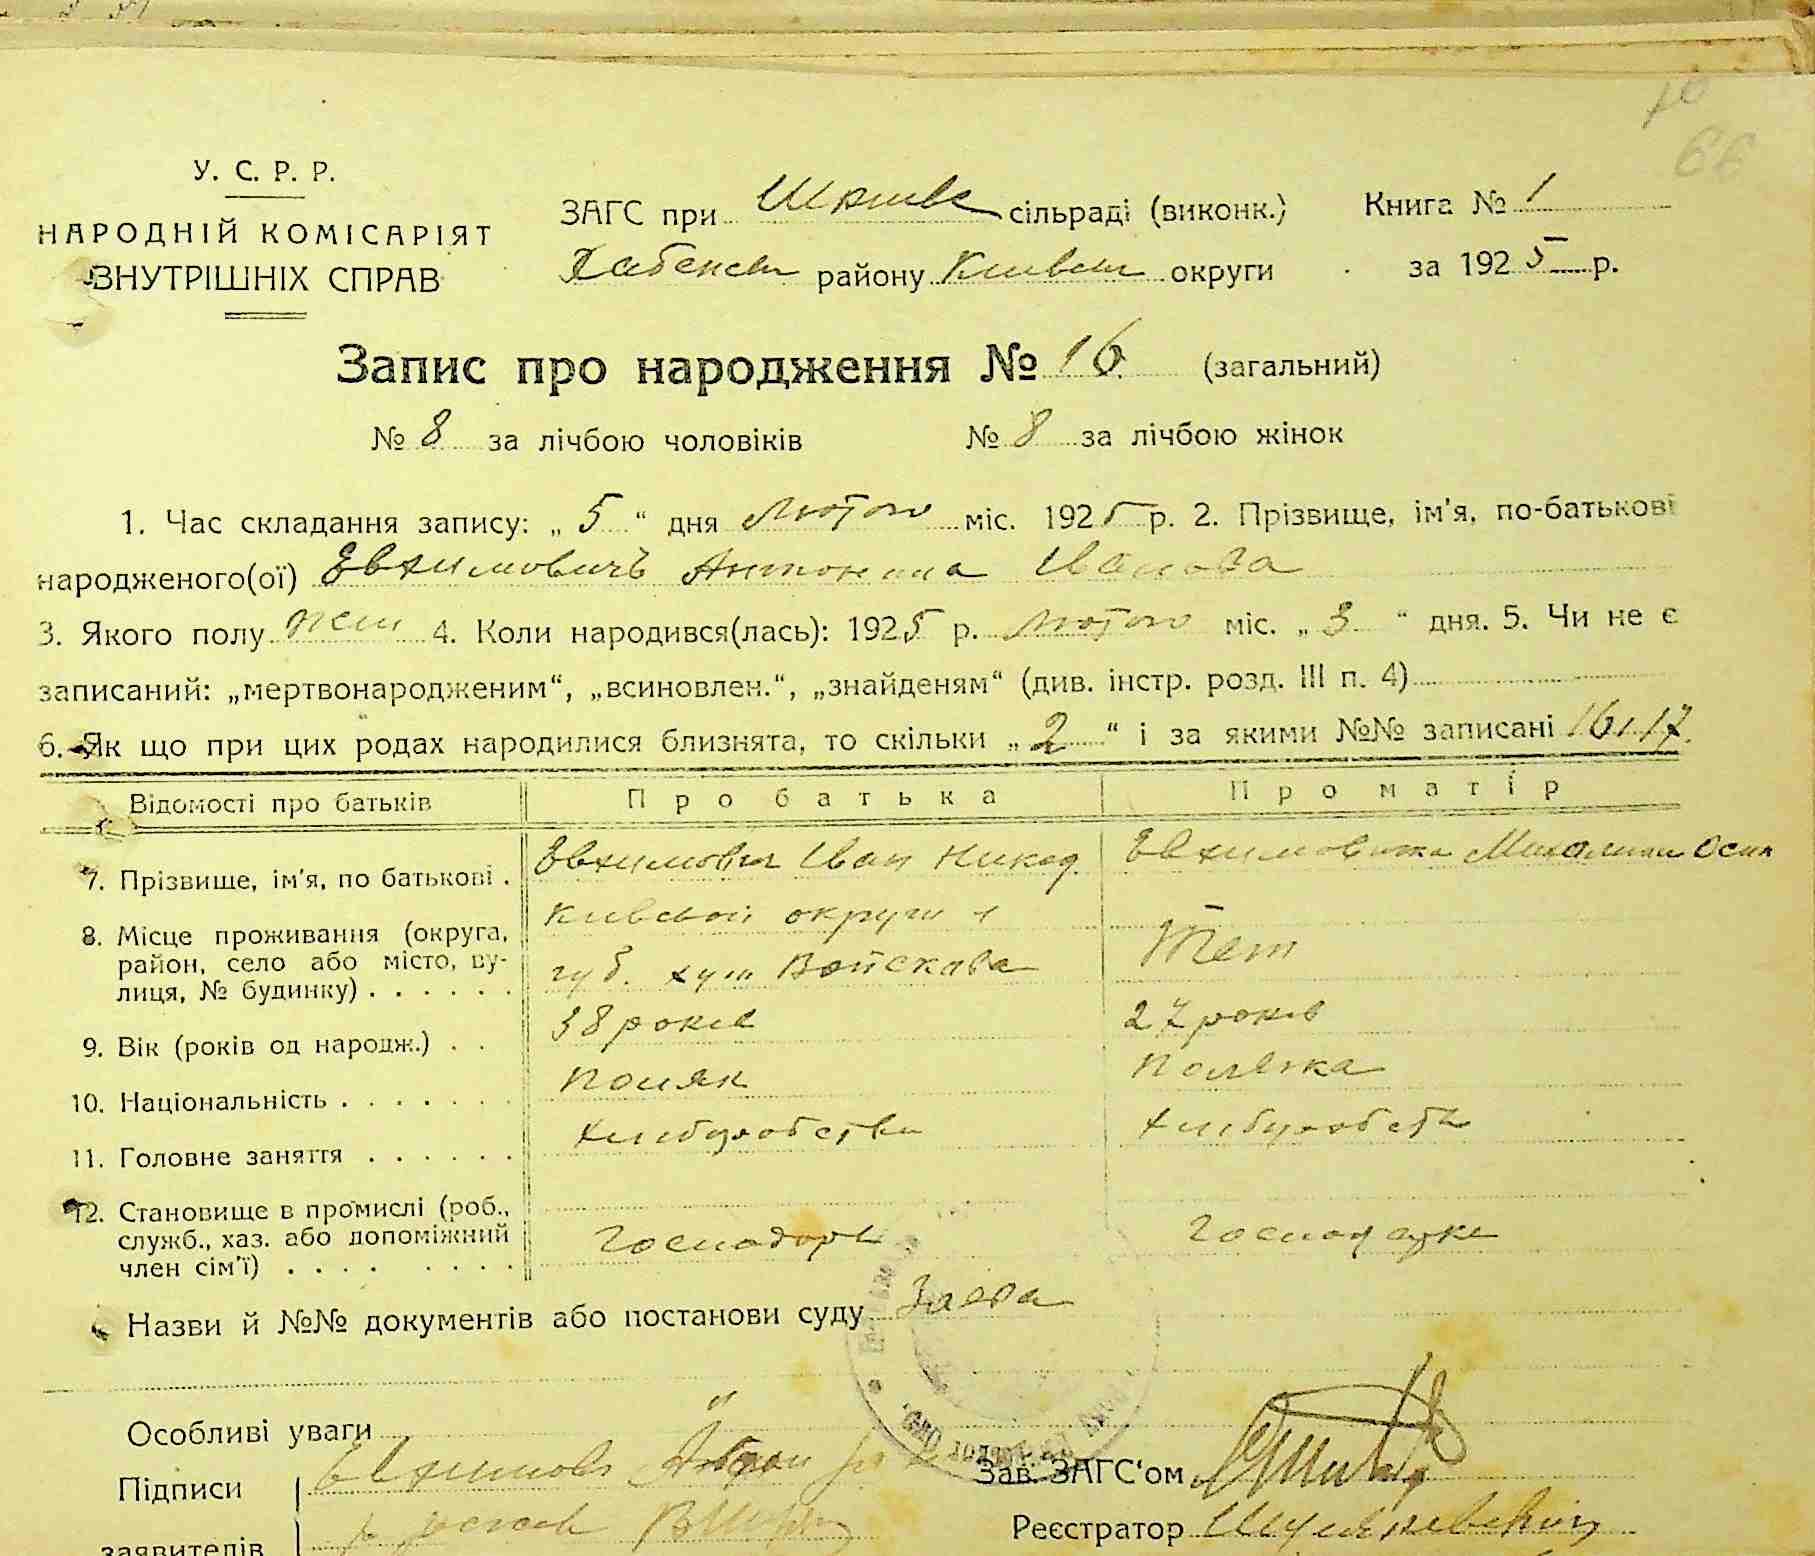 66
У. С. Р. Р.
НАРОДНІЙ КОМІСАРІЯТ
ВНУТРІШНІХ СПРАВ
ЗАГС при сільраді (виконк.)
району Киівськ округи
Книга № 1
за 1925 р.
Запис про народження № 16 (загальний)
№ 8 за лічбою чоловіків № 8 за лічбою жінок
1. Час складання запису: „ 5 “ дня Лютого міс. 1925 р. 2. Прізвище, ім'я, по-батькові
народженого(ої) Евхимовичъ Антонина Іванова
3. Якого полу жен 4. Коли народився(лась): 1925 р. Лютого міс. „ 3 “ дня. 5. Чи не є
записаний: „мертвонародженим“, „всиновлен.“, „знайденям“ (див. інстр. розд. III п. 4)
6. Як що при цих родах народилися близнята, то скільки „ 2 “ і за якими №№ записані 16 і 17.
Відомості про батьків Про батька Про матір
7. Прізвище, ім'я, по батькові . Евхимович Іван Никод. Евхимовичка Осип
8. Місце проживання (округа, район, село або місто, вулиця, № будинку) . . . . . . Киівськой округи і
губ. хут Войскава
Теж
9. Вік (років од народж.) . . 38 років 27 років
10. Національність . . . . . . . Поляк Полячка
11. Головне заняття . . . . . . хлиборобство хлиборобств
12. Становище в промислі (роб., служб., хаз. або допоміжний член сім'ї) . . . . . . . . Господарь
Назви й №№ документів або постанови суду Заява
Особливі уваги
Підписи
заявителів
Евхимович
Зав. ЗАГС'ом
Реєстратор